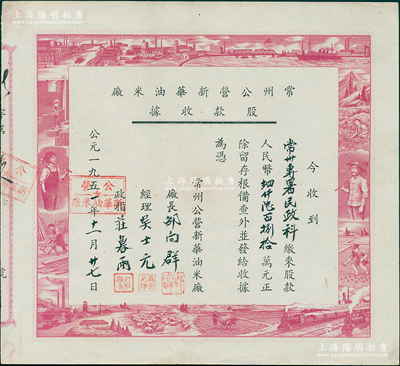 上海陽明拍賣
常州公營新華油米廠
股款收據
今收到
常州專署民政科繳來股款
人民幣 百捌拾萬元正
除留存根備查外並發給收據
為憑
常州公營新華油米廠
廠長 鄒向群
經理 吳士元
政指 莊晨雨
公元一九五 年十一月廿七日